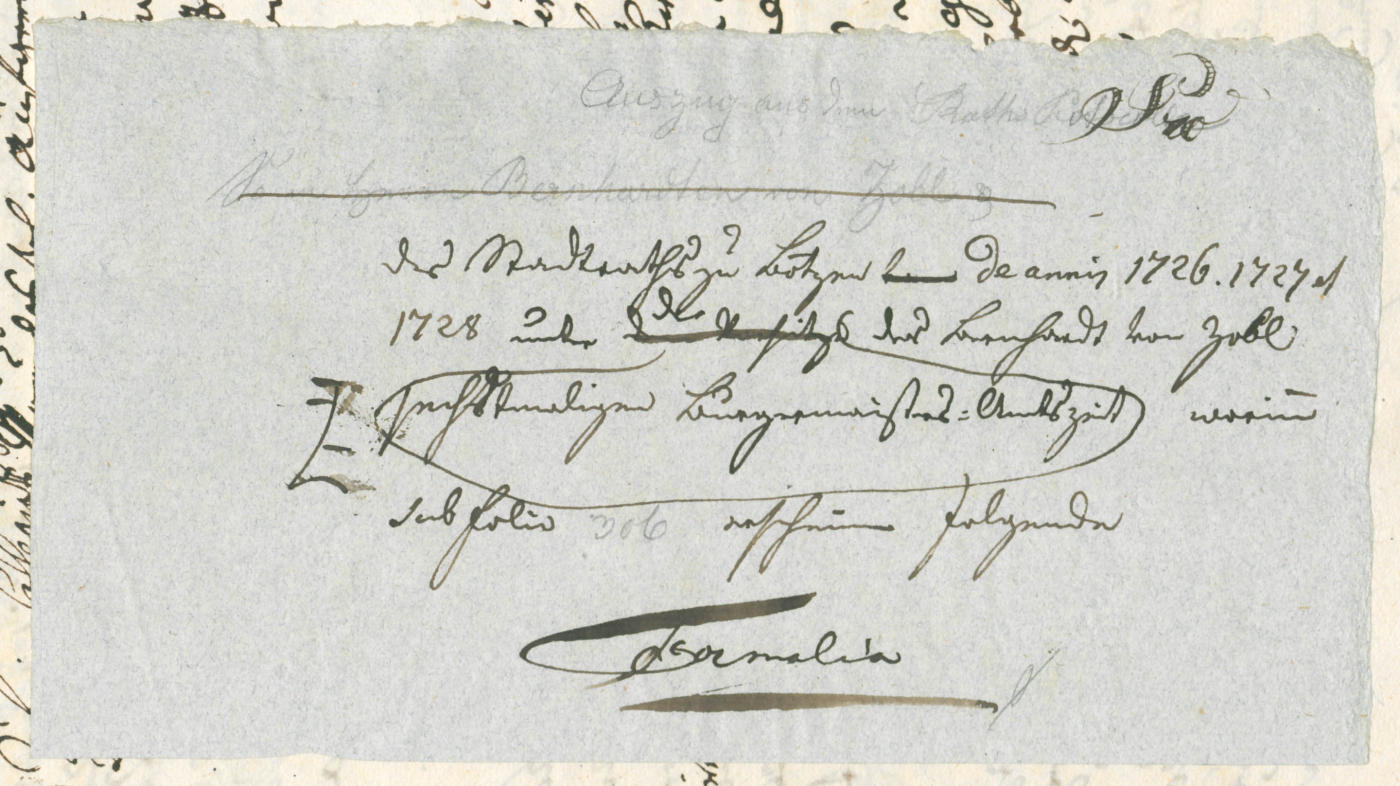 Auszug aus dem Raths Protocoll
Bernhardten von Zobl
des Stadtraths zu Botzen de annis 1726. 1727 et
1728 unter der Vorsitze des Bernhardt von Zobl
sechstmaligen Burgermaisters-Amtszeit worinn
sub folio 306 erscheinen folgende
Formalia